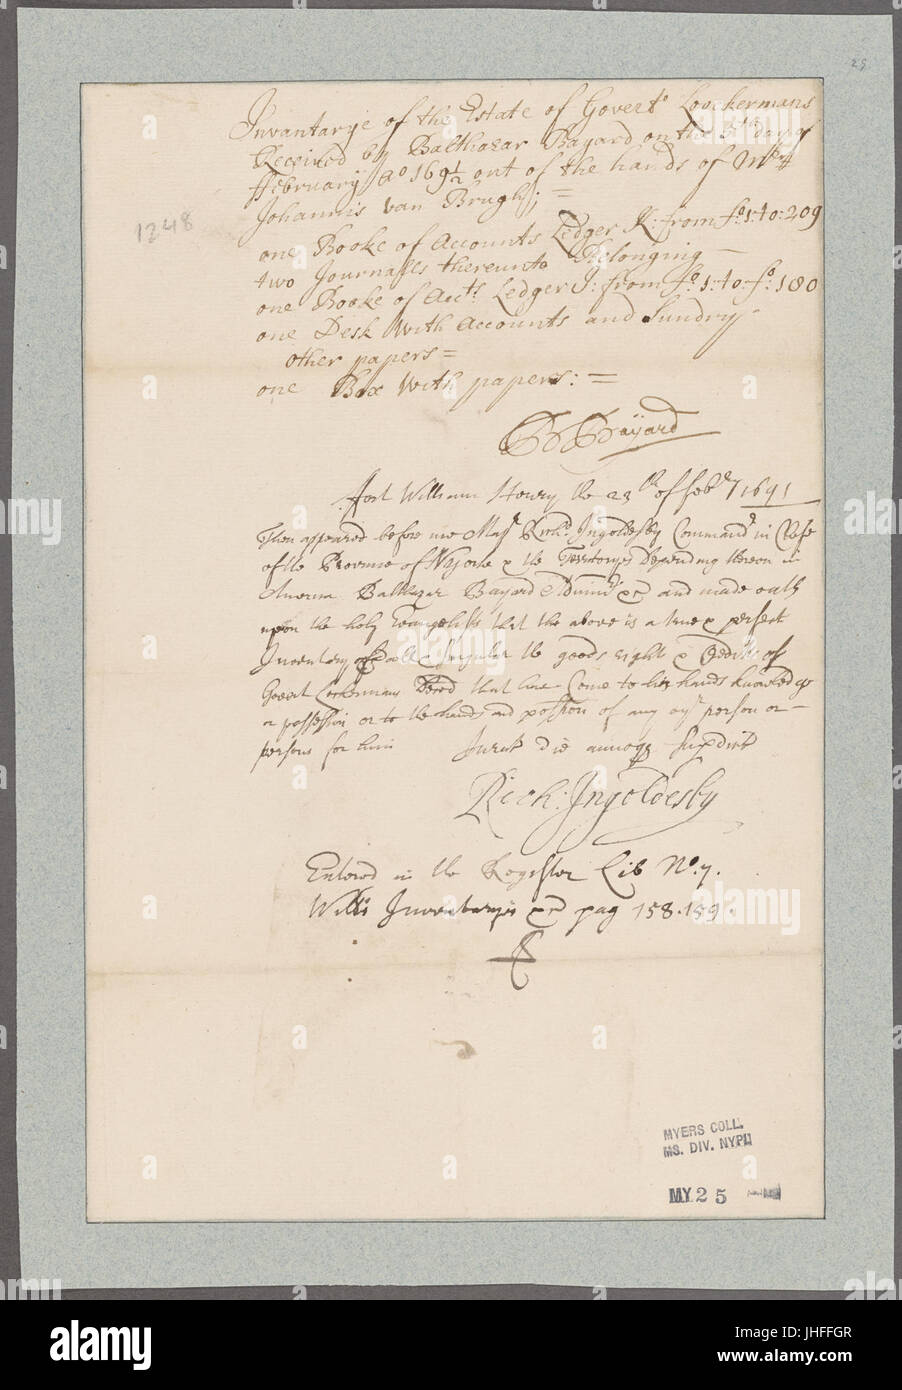 25
Invantarye of the Estate of Govert° Loockermans
Received by Balthazar Bayard on the 5th day of
ffebruary A° 169½ out of the hands of Mr
Johannis van Brugh; =
1248
one Booke of Accounts Ledger K: from f°:1:to:209
two Journalls thereunto Belonging —
one Booke of Acts. Ledger J: from f°:1:to:f°:180
one Desk with accounts and Sundry
other papers =
one Box with papers: =
B Bayard
ffort William Henry the 23th of febr 1691
Then appeared before me Majr Richd Ingoldesby Commandr in Chefe
of the Province of N Yorke & the Territorys Depending thereon in
America Balthazar Bayard Adminr &c and made oath
upon the holy Evangelists that the above is a true & perfect
Inventory of all & Singular the goods right & Credits of
Govert Lockermans Deced that have Come to his hands knowledge
or possession or to the hands and possion of any oyr person or —
persons for him Jurat die annoqz supradict
Rich: Ingoldesby
Entered in the Register Lib N°.7.
Wills Inventarys &c pag 158.159.
MYERS COLL.
MS. DIV. NYPL
MY 25
alamy
a
alamy stock photo
JHFFGR
www.alamy.com